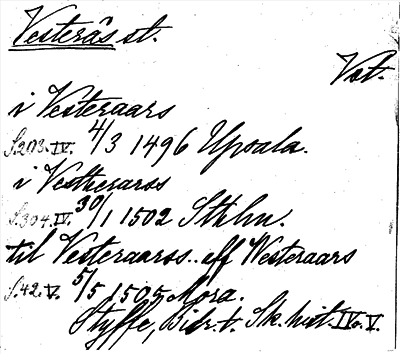 Vesterås st.
Vst.
i Vesteraars
S.293.IV. 4/3 1496 Upsala.
i Vestherarss
S.304.IV. 30/1 1502 Sthlm.
til Vesteraarss.. aff Westeraars
S.42.V. 5/5 1505 Mora.
Styffe, Bidr. t. Sk. hist. IV o. V.